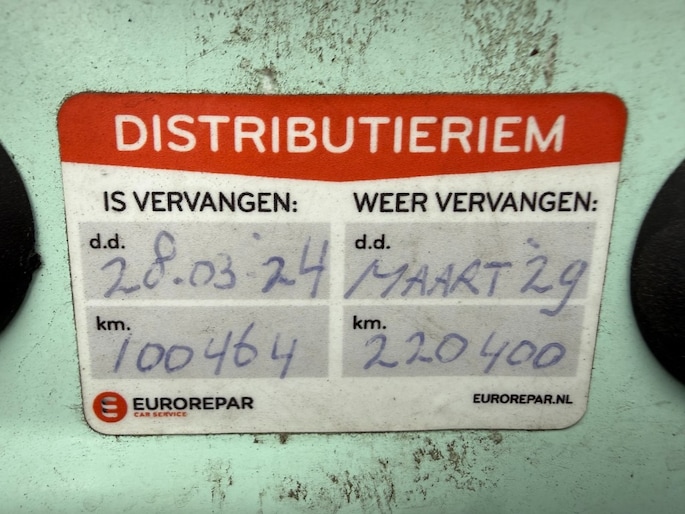 DISTRIBUTIERIEM
IS VERVANGEN: WEER VERVANGEN:
d.d. 28.03.24 d.d. MAART "29
km. 100464 km. 220400
EUROREPAR EUROREPAR.NL
CAR SERVICE